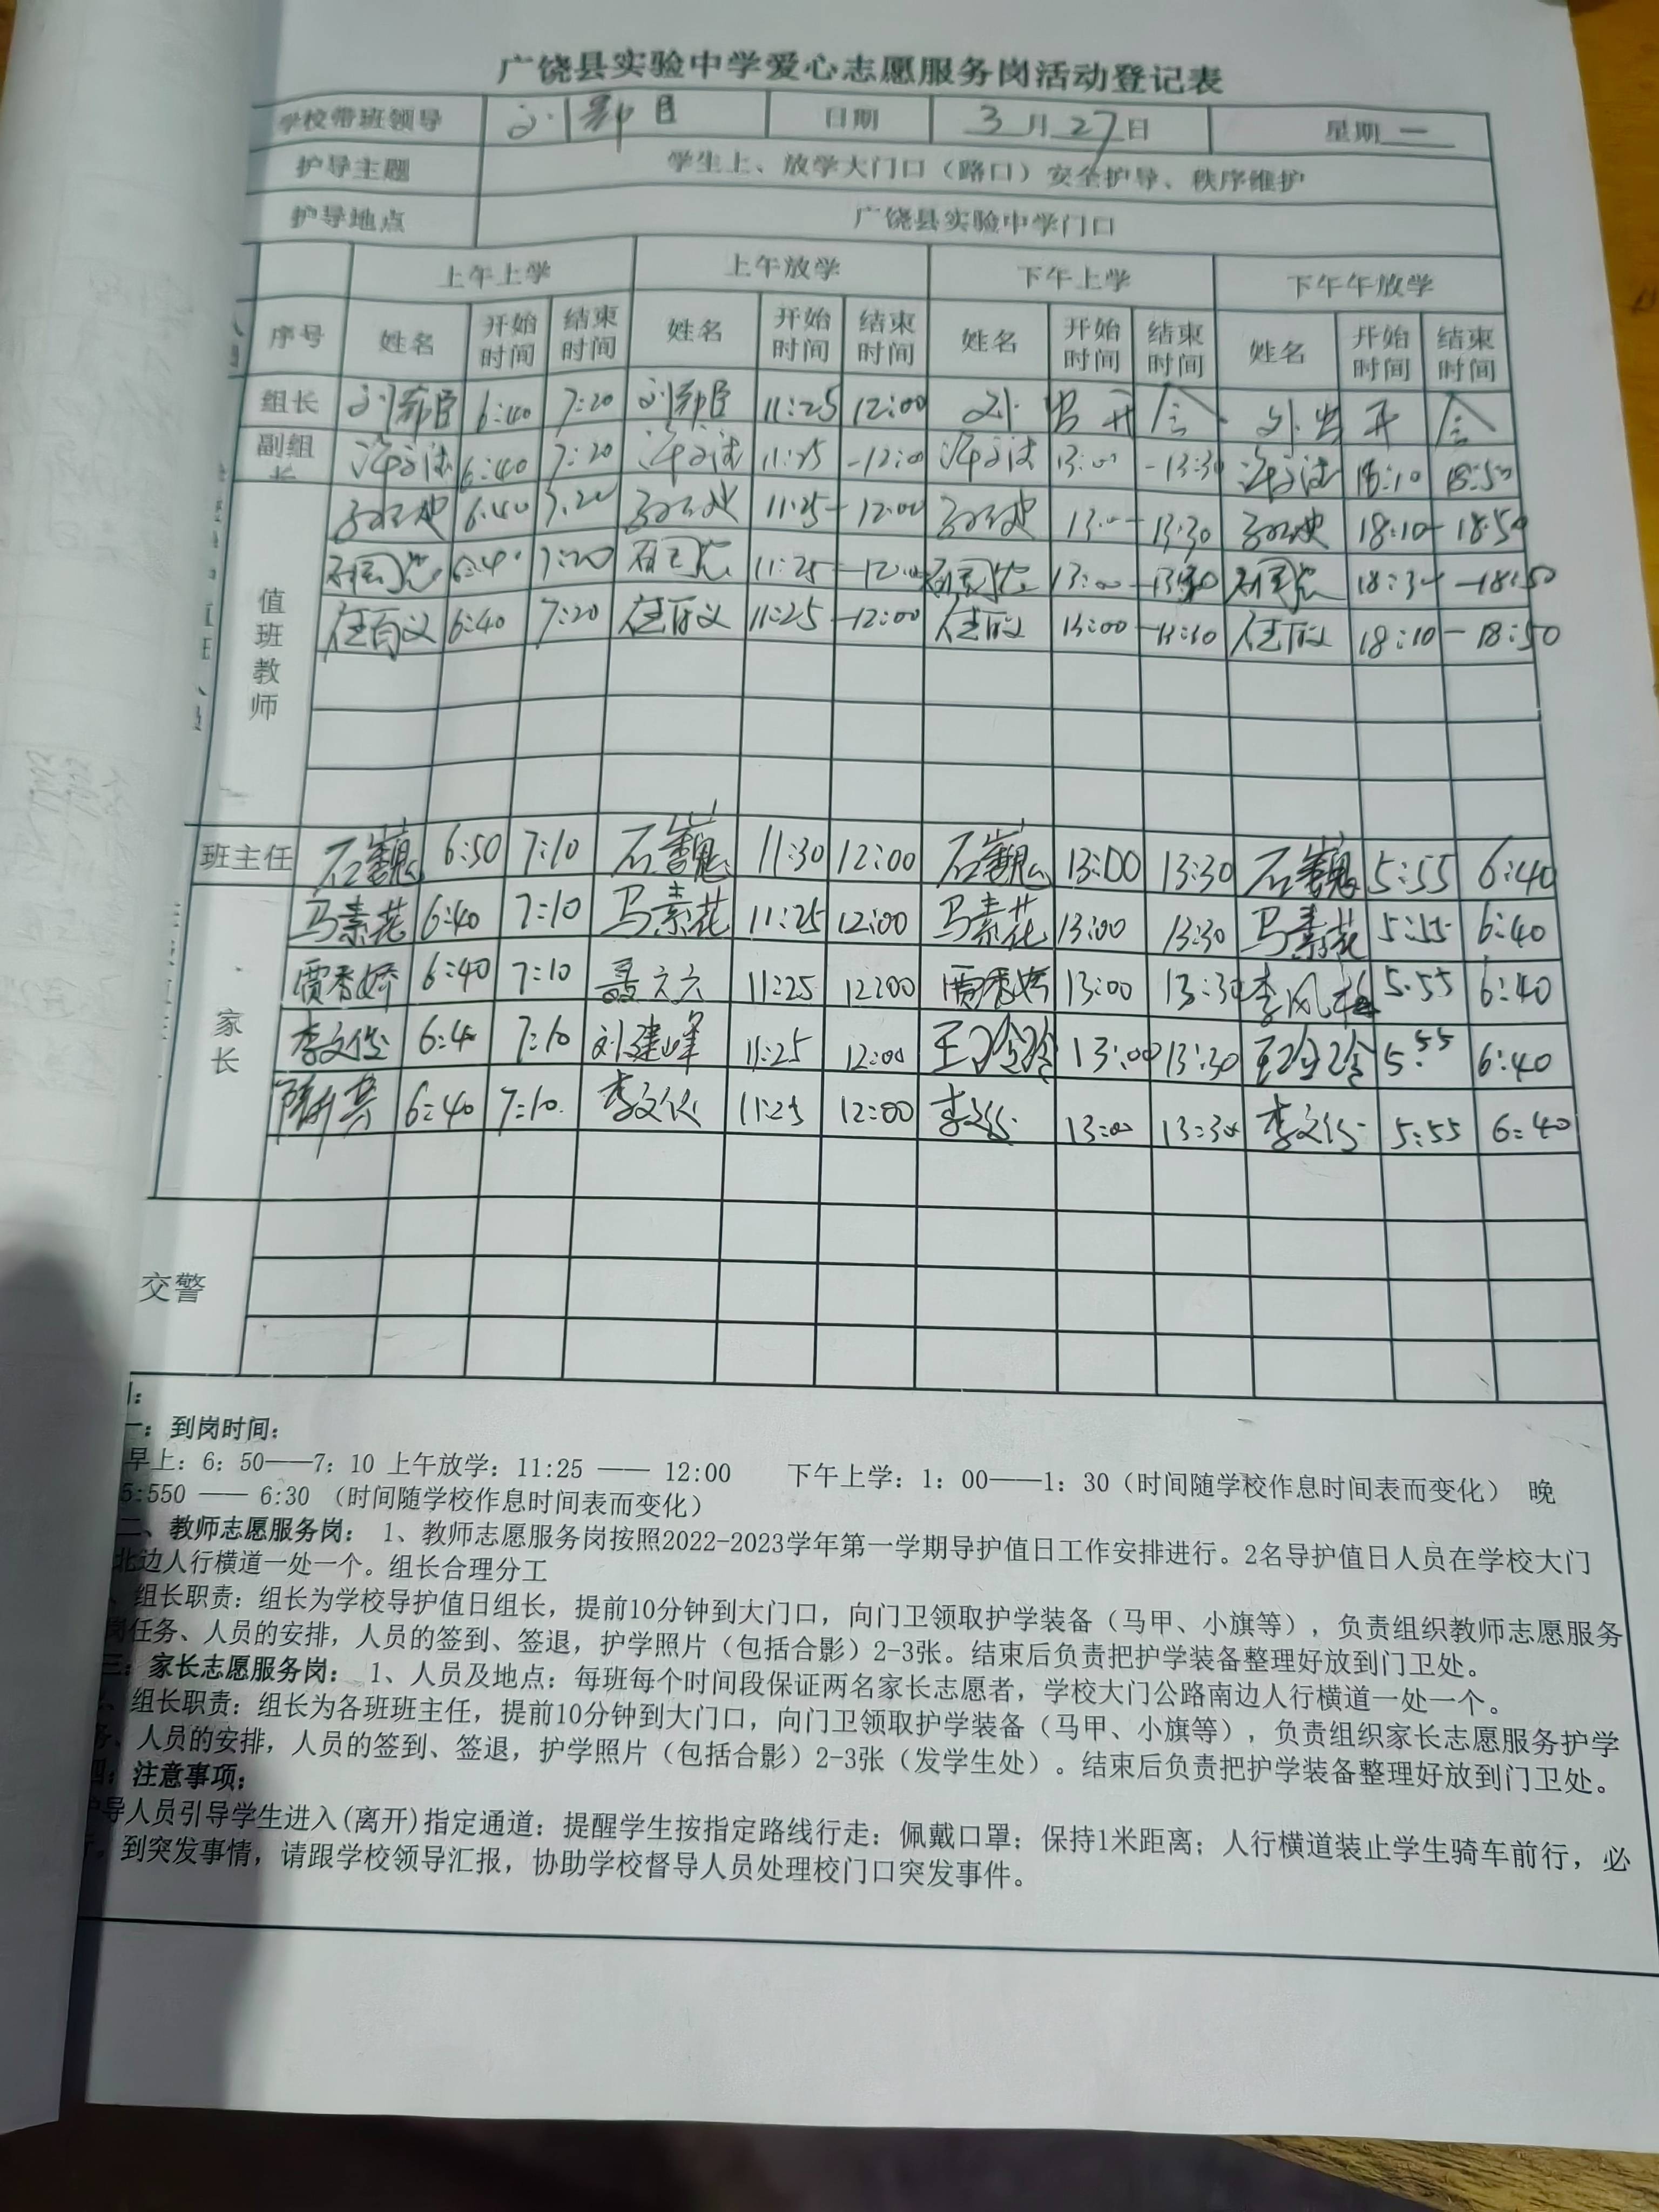 广饶县实验中学爱心志愿服务岗活动登记表
学校带班领导 日期 3月27日 星期一
护导主题 学生上、放学大门口（路口）安全护导、秩序维护
护导地点 广饶县实验中学门口
上午上学 上午放学 下午上学 下午午放学
序号 姓名 开始时间 结束时间 姓名 开始时间 结束时间 姓名 开始时间 结束时间 姓名 开始时间 结束时间
组长 6:40 7:20 11:25 12:00 外出开会 外出开会
副组长 6:40 7:20 11:25 -12:00 13:00 -13:30 18:10 18:50
值班教师
6:40 7:20 11:25- 12:00 13:00- 13:30 18:10- 18:50
6:40 7:20 11:25 -12:00 13:00 -13:30 -18:50
任百义 6:40 7:20 任百义 11:25 -12:00 任百义 13:00 -13:30 任百义 18:10- 18:50
班主任 6:50 7:10 11:30 12:00 13:00 13:30 5:55 6:40
家长
马素花 6:40 7:10 马素花 11:25 12:00 马素花 13:00 13:30 马素花 5:55 6:40
贾秀娇 6:40 7:10 聂六六 11:25 12:00 贾秀娇 13:00 13:30 李风梅 5:55 6:40
6:40 7:10 刘建峰 11:25 12:00 王玲玲 13:00 13:30 王玲玲 5:55 6:40
6:40 7:10. 11:25 12:00 13:00 13:30 5:55 6:40
交警
一：到岗时间：
早上：6：50——7：10 上午放学：11:25 —— 12:00 下午上学：1：00——1：30（时间随学校作息时间表而变化） 晚
5:550 —— 6:30 （时间随学校作息时间表而变化）
二、教师志愿服务岗： 1、教师志愿服务岗按照2022-2023学年第一学期导护值日工作安排进行。2名导护值日人员在学校大门
北边人行横道一处一个。组长合理分工
、组长职责：组长为学校导护值日组长，提前10分钟到大门口，向门卫领取护学装备（马甲、小旗等），负责组织教师志愿服务
岗任务、人员的安排，人员的签到、签退，护学照片（包括合影）2-3张。结束后负责把护学装备整理好放到门卫处。
三：家长志愿服务岗： 1、人员及地点：每班每个时间段保证两名家长志愿者，学校大门公路南边人行横道一处一个。
、组长职责：组长为各班班主任，提前10分钟到大门口，向门卫领取护学装备（马甲、小旗等），负责组织家长志愿服务护学
务、人员的安排，人员的签到、签退，护学照片（包括合影）2-3张（发学生处）。结束后负责把护学装备整理好放到门卫处。
四：注意事项：
护导人员引导学生进入(离开)指定通道；提醒学生按指定路线行走；佩戴口罩；保持1米距离；人行横道装止学生骑车前行，必
，到突发事情，请跟学校领导汇报，协助学校督导人员处理校门口突发事件。